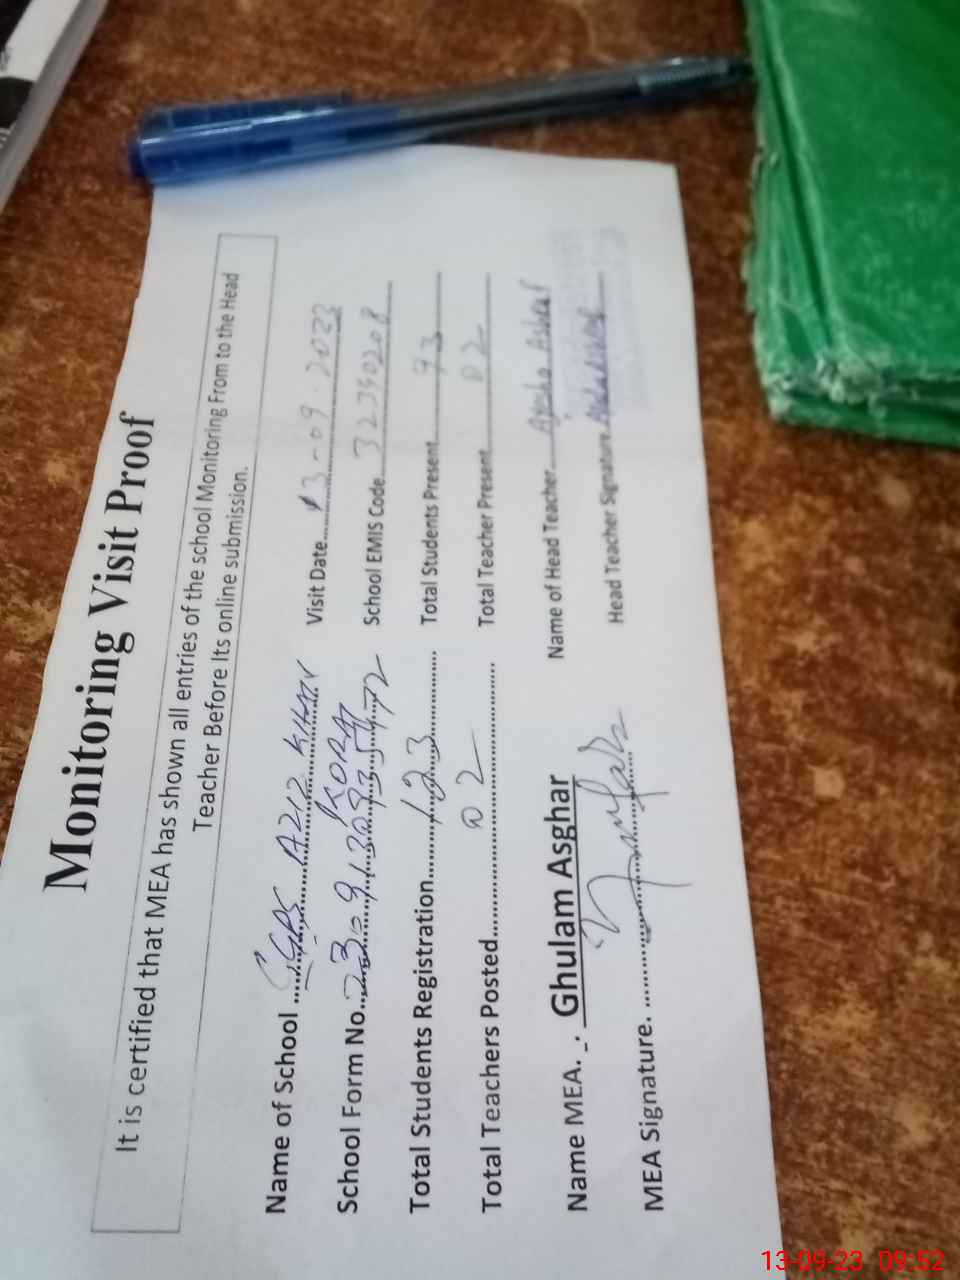 Monitoring Visit Proof
It is certified that MEA has shown all entries of the school Monitoring From to the Head
Teacher Before Its online submission.
Name of School ......GGPS AZIZ KHAN Visit Date......13-09-2023
KORAI
School Form No... School EMIS Code...32350208
Total Students Registration......123 Total Students Present......93
Total Teachers Posted......02 Total Teacher Present......02
Name MEA. Ghulam Asghar Name of Head Teacher......Ayesha Ashraf
MEA Signature. ...... Head Teacher Signature......
13-09-23 09:52